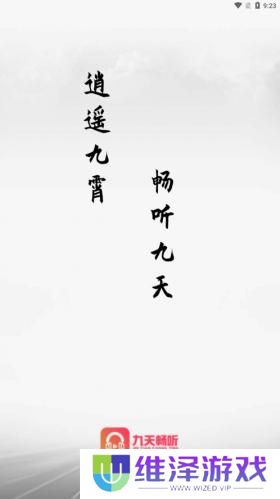 9:23
逍遥九霄
畅听九天
九天畅听
维泽游戏
WWW.WIZED.VIP